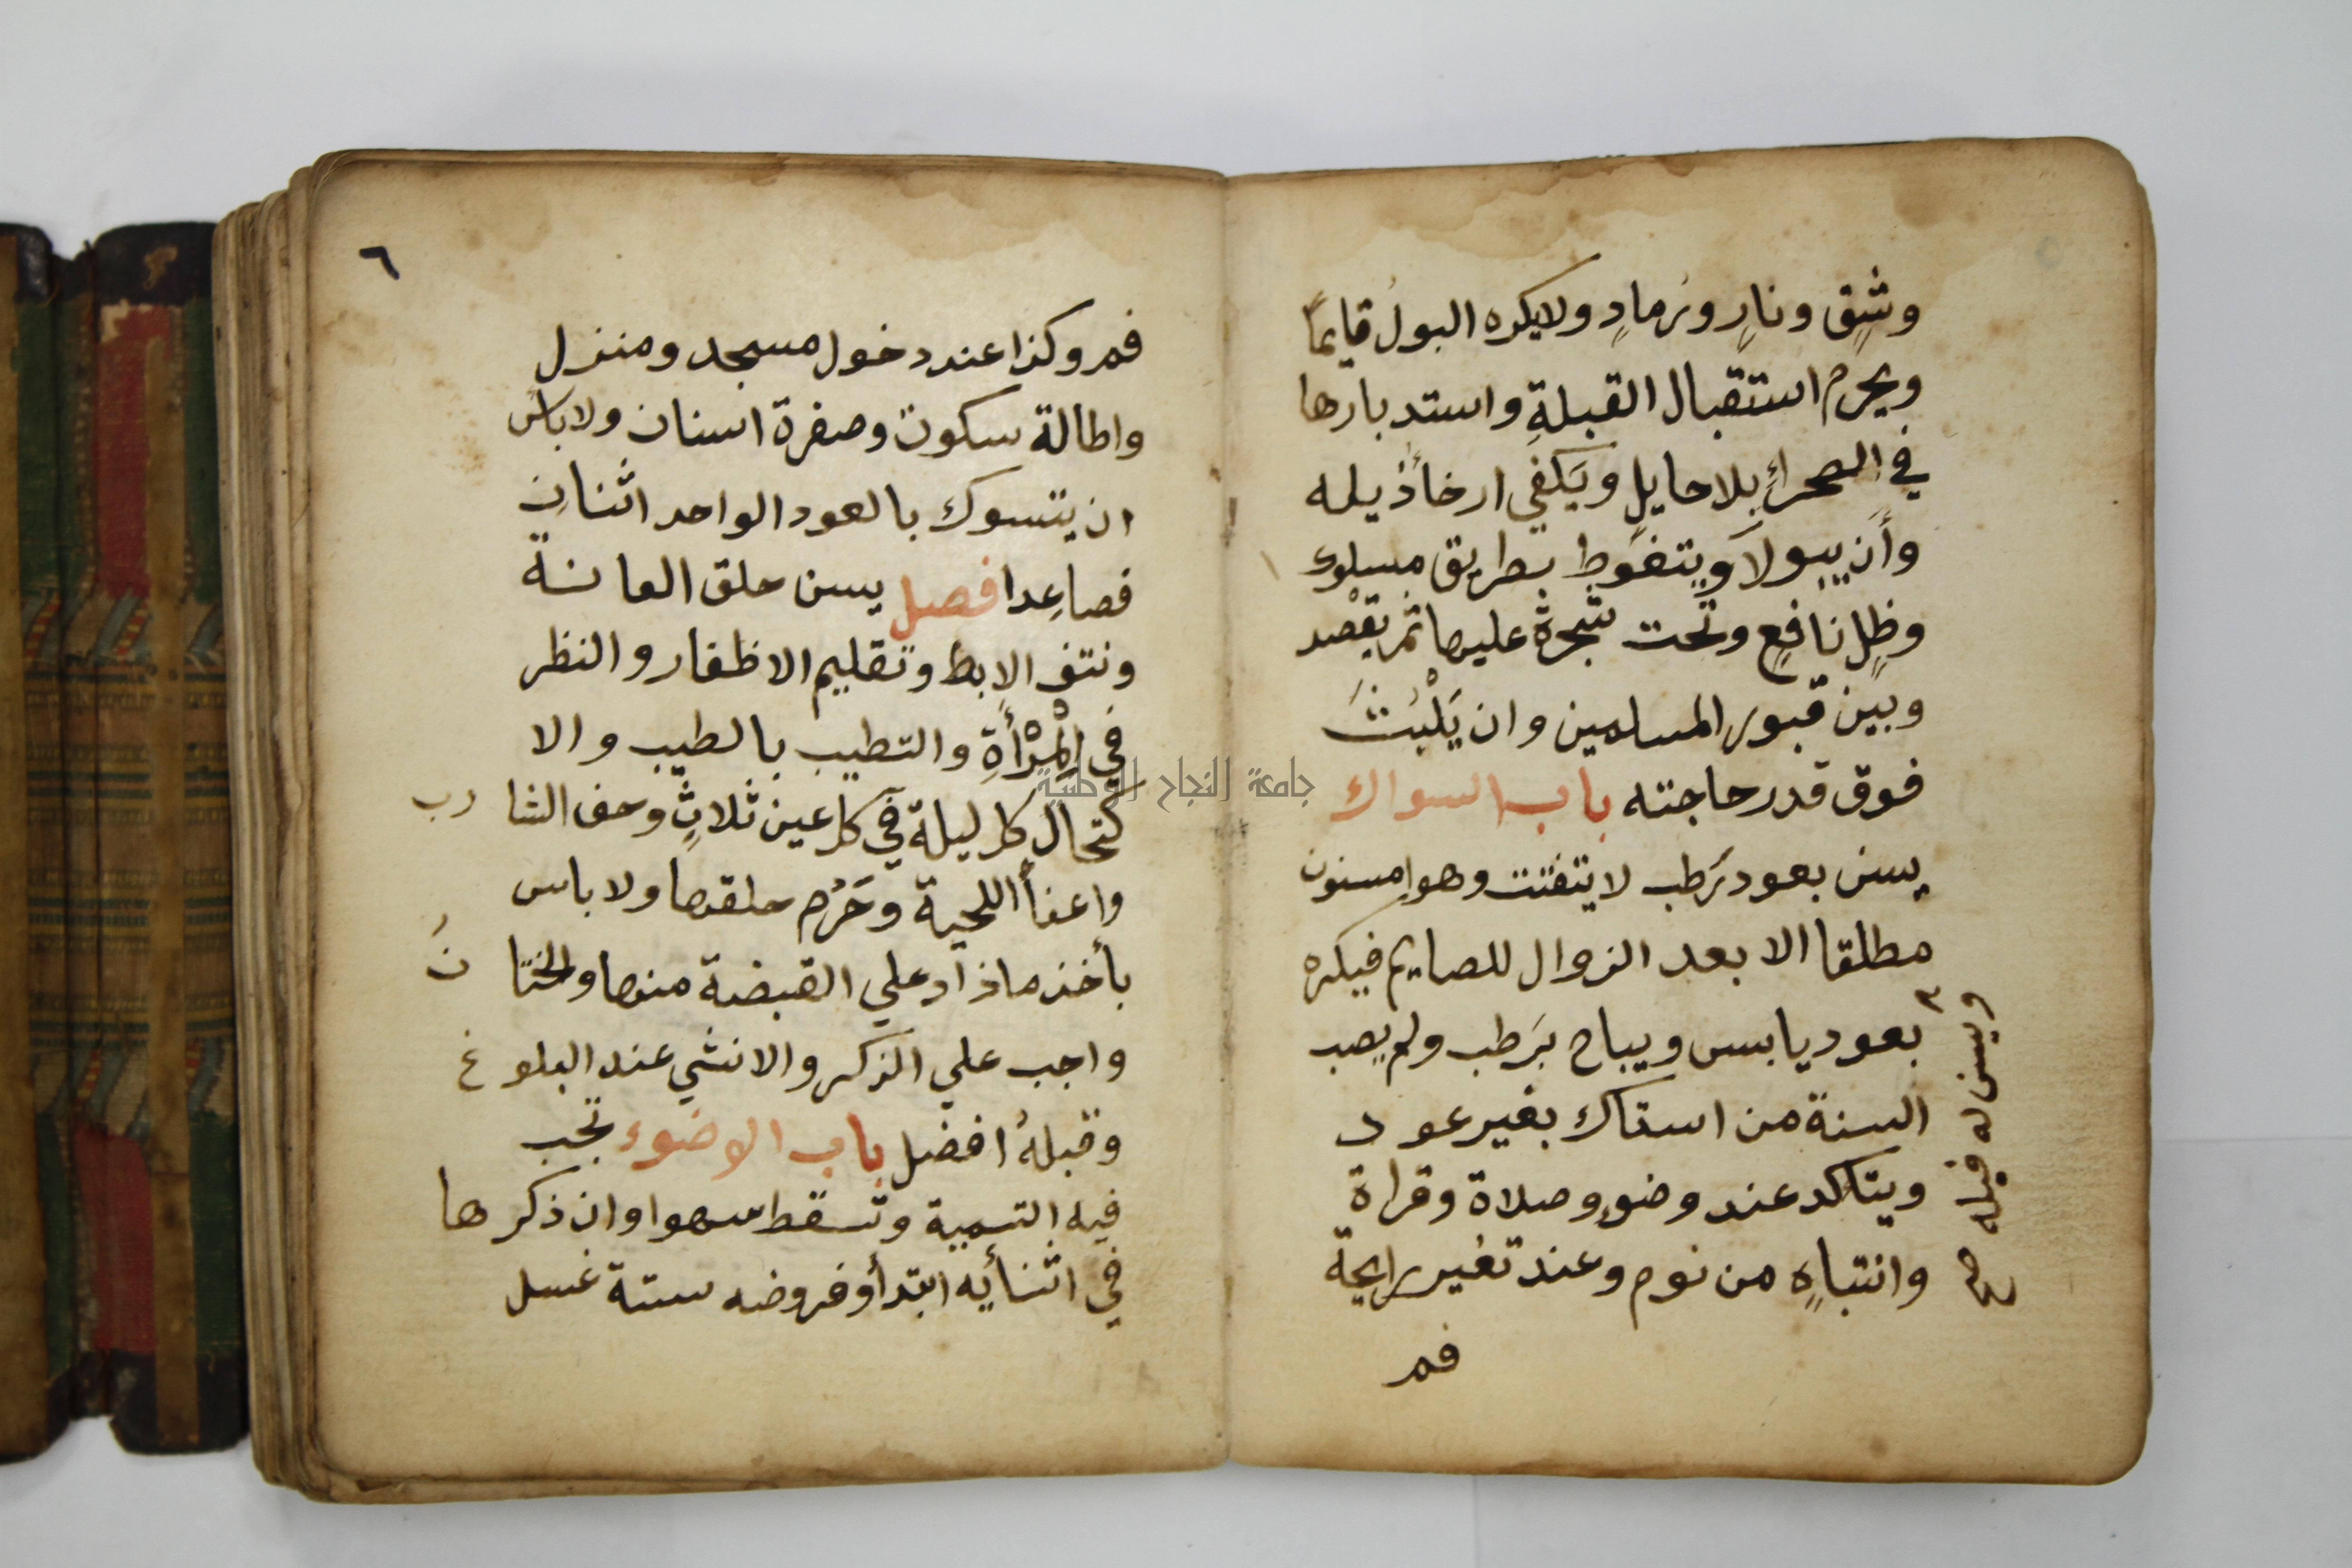 وشقٍ ونارٍ ورمادٍ ولايكره البولُ قايمًا
ويحرم استقبال القبلةِ واستدبارها
في الصحراءِ بلا حايلٍ ويَكفي ارخأذيله
وأَن يبولَ اويتغوَّط بطريق مسلوك
وظلٍ نافعٍ وتحت شجرة عليها ثمر يقصد
وبين قبور المسلمين وان يَلْبُثَ
فوق قدر حاجته باب السواك
يسن بعود رَطب لا يتفتت وهو مسنون
مطلقا الا بعد الزوال للصايم فيكره
بعود يابس ويباح برَطب ولم يصب
السنة من استاك بغير عود
ويتاكد عند وضو وصلاة وقراة
وانتباهٍ من نوم وعند تغير رايحة
فم
ويسن له قبله صح
٦
فم وكذا عند دخول مسجد ومنزل
واطالة سكوت وصفرة اسنان ولا بأس
ان يتسوك بالعود الواحد اثنان
فصاعِدا فصل يسن حلق العانة
ونتف الابط وتقليم الاظفار والنظر
في المِرْأَةِ والتطيب بالطيب والا
كتحال كل ليلة في كل عين ثلاثٍ وحف الشارب
واعفأ اللحية وحَرُم حلقها ولا باس
بأخذ ما زاد علي القبضة منها والختانُ
واجب علي الذكر والانثي عند البلوغ
وقبلهُ افضل باب الوضوء تجب
فيه التسمية وتسقط سهوا وان ذكرها
في اثنأيه ابتدأ وفروضه ستة غسل
جامعة النجاح الوطنية